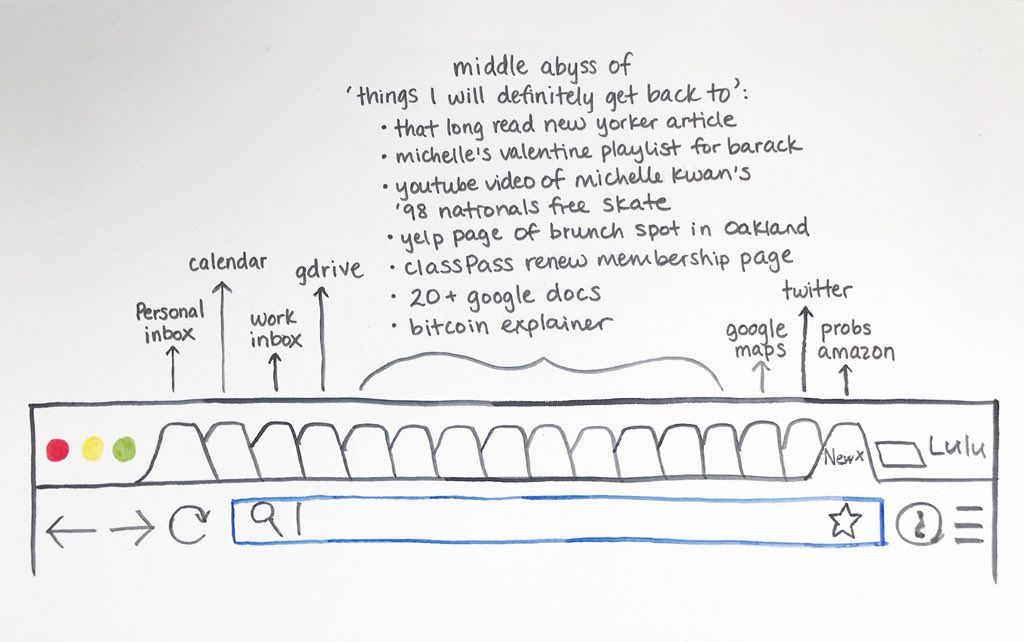 middle abyss of
'things I will definitely get back to':
• that long read new yorker article
• michelle's valentine playlist for barack
• youtube video of michelle kwan's
'98 nationals free skate
• yelp page of brunch spot in oakland
• classPass renew membership page
• 20+ google docs
• bitcoin explainer
Personal
inbox
calendar
work
inbox
gdrive
google
maps
twitter
probs
amazon
New x
Lulu